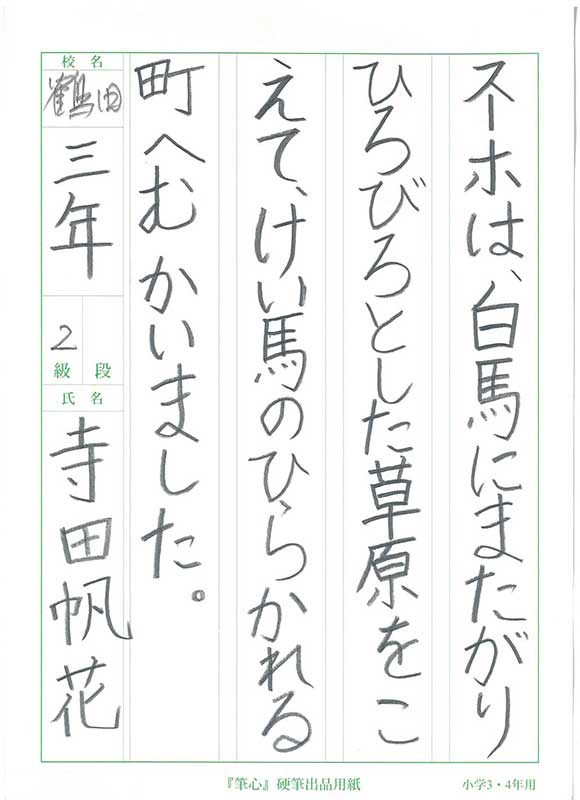 スーホは、白馬にまたがり
ひろびろとした草原をこ
えて、けい馬のひらかれる
町へむかいました。
校名
鶴田
三年
2
級 段
氏名
寺田帆花
『筆心』硬筆出品用紙
小学3・4年用